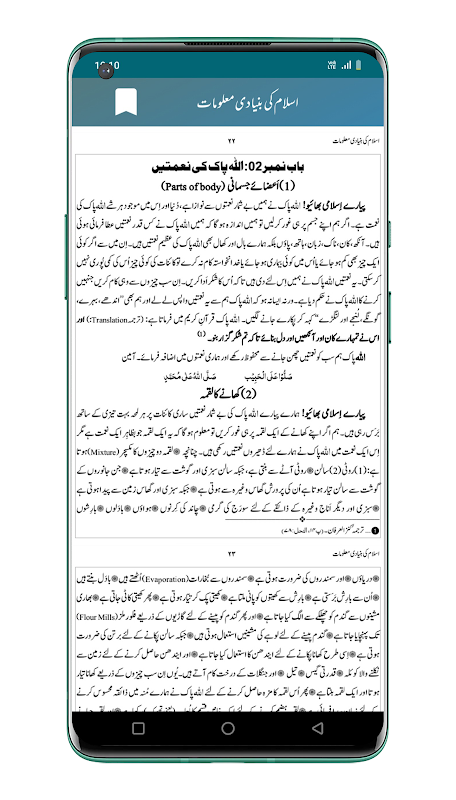 10:10
اسلام کی بنیادی معلومات
اسلام کی بنیادی معلومات ۲۲
باب نمبر 02: اللہ پاک کی نعمتیں
(1) اَعضائے جسمانی (Parts of body)
پیارے اِسلامی بھائیو! اللہ پاک نے ہمیں بے شمار نعمتوں سے نوازا ہے، دُنیا اور اِس میں موجود ہر شے اللہ پاک کی
نعمت ہے۔ اگر ہم اپنے جسم پر ہی غور کرلیں تو ہمیں اندازہ ہوگا کہ ہمیں اللہ پاک نے کس قدر نعمتیں عطا فرمائی ہوئی
ہیں۔ آنکھ، کان، ناک، زبان، ہاتھ، پاؤں بلکہ ہمارے بال اور کھال بھی اللہ پاک کی عظیم نعمتیں ہیں۔ اِن میں سے اگر کوئی
ایک چیز بھی کم ہوجائے یا اُس میں کوئی بیماری ہوجائے یا خدانخواستہ کام نہ کرے تو کائنات کی کوئی چیز اُس کی کمی پوری نہیں
کرسکتی۔ یہ نعمتیں اللہ پاک نے ہمیں اِس لئے دی ہیں تاکہ اُس کا شکر ادا کریں۔ اِن سب چیزوں سے وہی کام کریں جنہیں
کرنے کا اللہ پاک نے حکم دیا ہے۔ ورنہ ایسا نہ ہو کہ اللہ پاک ہم سے یہ نعمتیں واپس لے لے اور ہم بھی ”اندھے، بہرے،
گونگے، لُنجے اور لنگڑے“ کہہ کر پکارے جانے لگیں۔ اللہ پاک قرآنِ کریم میں فرماتا ہے: (ترجمہ Translation:) اور
اس نے تمہارے کان اور آنکھیں اور دل بنائے تاکہ تم شکر گزار بنو۔ (1)
اللہ پاک ہم سب کو نعمتیں چھن جانے سے محفوظ رکھے اور ہماری نعمتوں میں اضافہ فرمائے۔ آمین
صَلُّوْا عَلَی الْحَبِیْب صَلَّی اللہُ عَلٰی مُحَمَّد
(2) کھانے کا لقمہ
پیارے اِسلامی بھائیو! ہمارے پیارے اللہ پاک کی بے شمار نعمتیں ساری کائنات پر ہر لمحہ بہت تیزی کے ساتھ
برس رہی ہیں۔ ہم اگر اپنے کھانے کے ایک لقمہ پر ہی غور کریں تو معلوم ہوگا کہ یہ ایک لقمہ جو بظاہر ایک نعمت ہے مگر
اِس ایک نعمت میں اللہ پاک نے ہمارے لئے ڈھیروں نعمتیں رکھی ہیں۔ چنانچہ ❁ لقمہ دو چیزوں کا مکسچر (Mixture) ہوتا
ہے: (1) روٹی (2) سالن ❁ روٹی آٹے سے بنتی ہے، جبکہ سالن سبزی اور گوشت سے تیار ہوتا ہے ❁ جن جانوروں کے
گوشت سے سالن تیار ہوتا ہے اُن کی پرورش گھاس وغیرہ سے ہوتی ہے ❁ جبکہ سبزی اور گھاس زمین سے پیدا ہوتی ہے
❁ سبزی اور دیگر اناج وغیرہ کے ذائقے کے لئے سورج کی گرمی ❁ چاند کی کرنوں ❁ ہواؤں ❁ بادلوں ❁ بارشوں
❶ ... ترجمۂ کنز العرفان۔ (پ۱۴، النحل: ۷۸)
اسلام کی بنیادی معلومات ۲۳
❁ دریاؤں ❁ اور سمندروں کی ضرورت ہوتی ہے ❁ سمندروں سے بخارات (Evaporation) اُٹھتے ہیں ❁ بادل بنتے ہیں
❁ اُن سے بارش برستی ہے ❁ بارش سے کھیتوں کو پانی ملتا ہے ❁ کھیتی پک کر تیار ہوتی ہے ❁ پھر کھیتی کاٹی جاتی ہے ❁ بھاری
مشینوں سے گندم کو چھلکے سے الگ کیا جاتا ہے ❁ اور پھر گندم کو پیسنے کے لئے گاڑیوں کے ذریعے فلور ملز (Flour Mills)
تک پہنچایا جاتا ہے ❁ گندم پیسنے کے لئے لوہے کی مشینیں استعمال ہوتی ہیں ❁ جبکہ سالن پکانے کے لئے برتن کی ضرورت
ہوتی ہے ❁ اِسی طرح کھانا پکانے کے لئے ایندھن کا استعمال کیا جاتا ہے ❁ اور ایندھن حاصل کرنے کے لئے زمین سے
نکلنے والا کوئلہ ❁ قدرتی گیس ❁ تیل ❁ اور جنگلات کے درخت کام آتے ہیں۔ یُوں اِن سب چیزوں کے ذریعے کھانا تیار
ہوتا اور ایک لقمہ بنتا ہے ❁ پھر اُس لقمہ کا مزہ حاصل کرنے کے لئے اللہ پاک نے ہمارے مُنہ میں ذائقہ محسوس کرنے